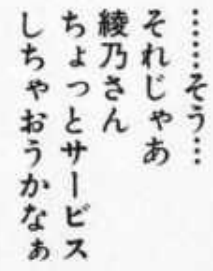 ……そう…
それじゃあ
綾乃さん
ちょっとサービス
しちゃおうかなぁ